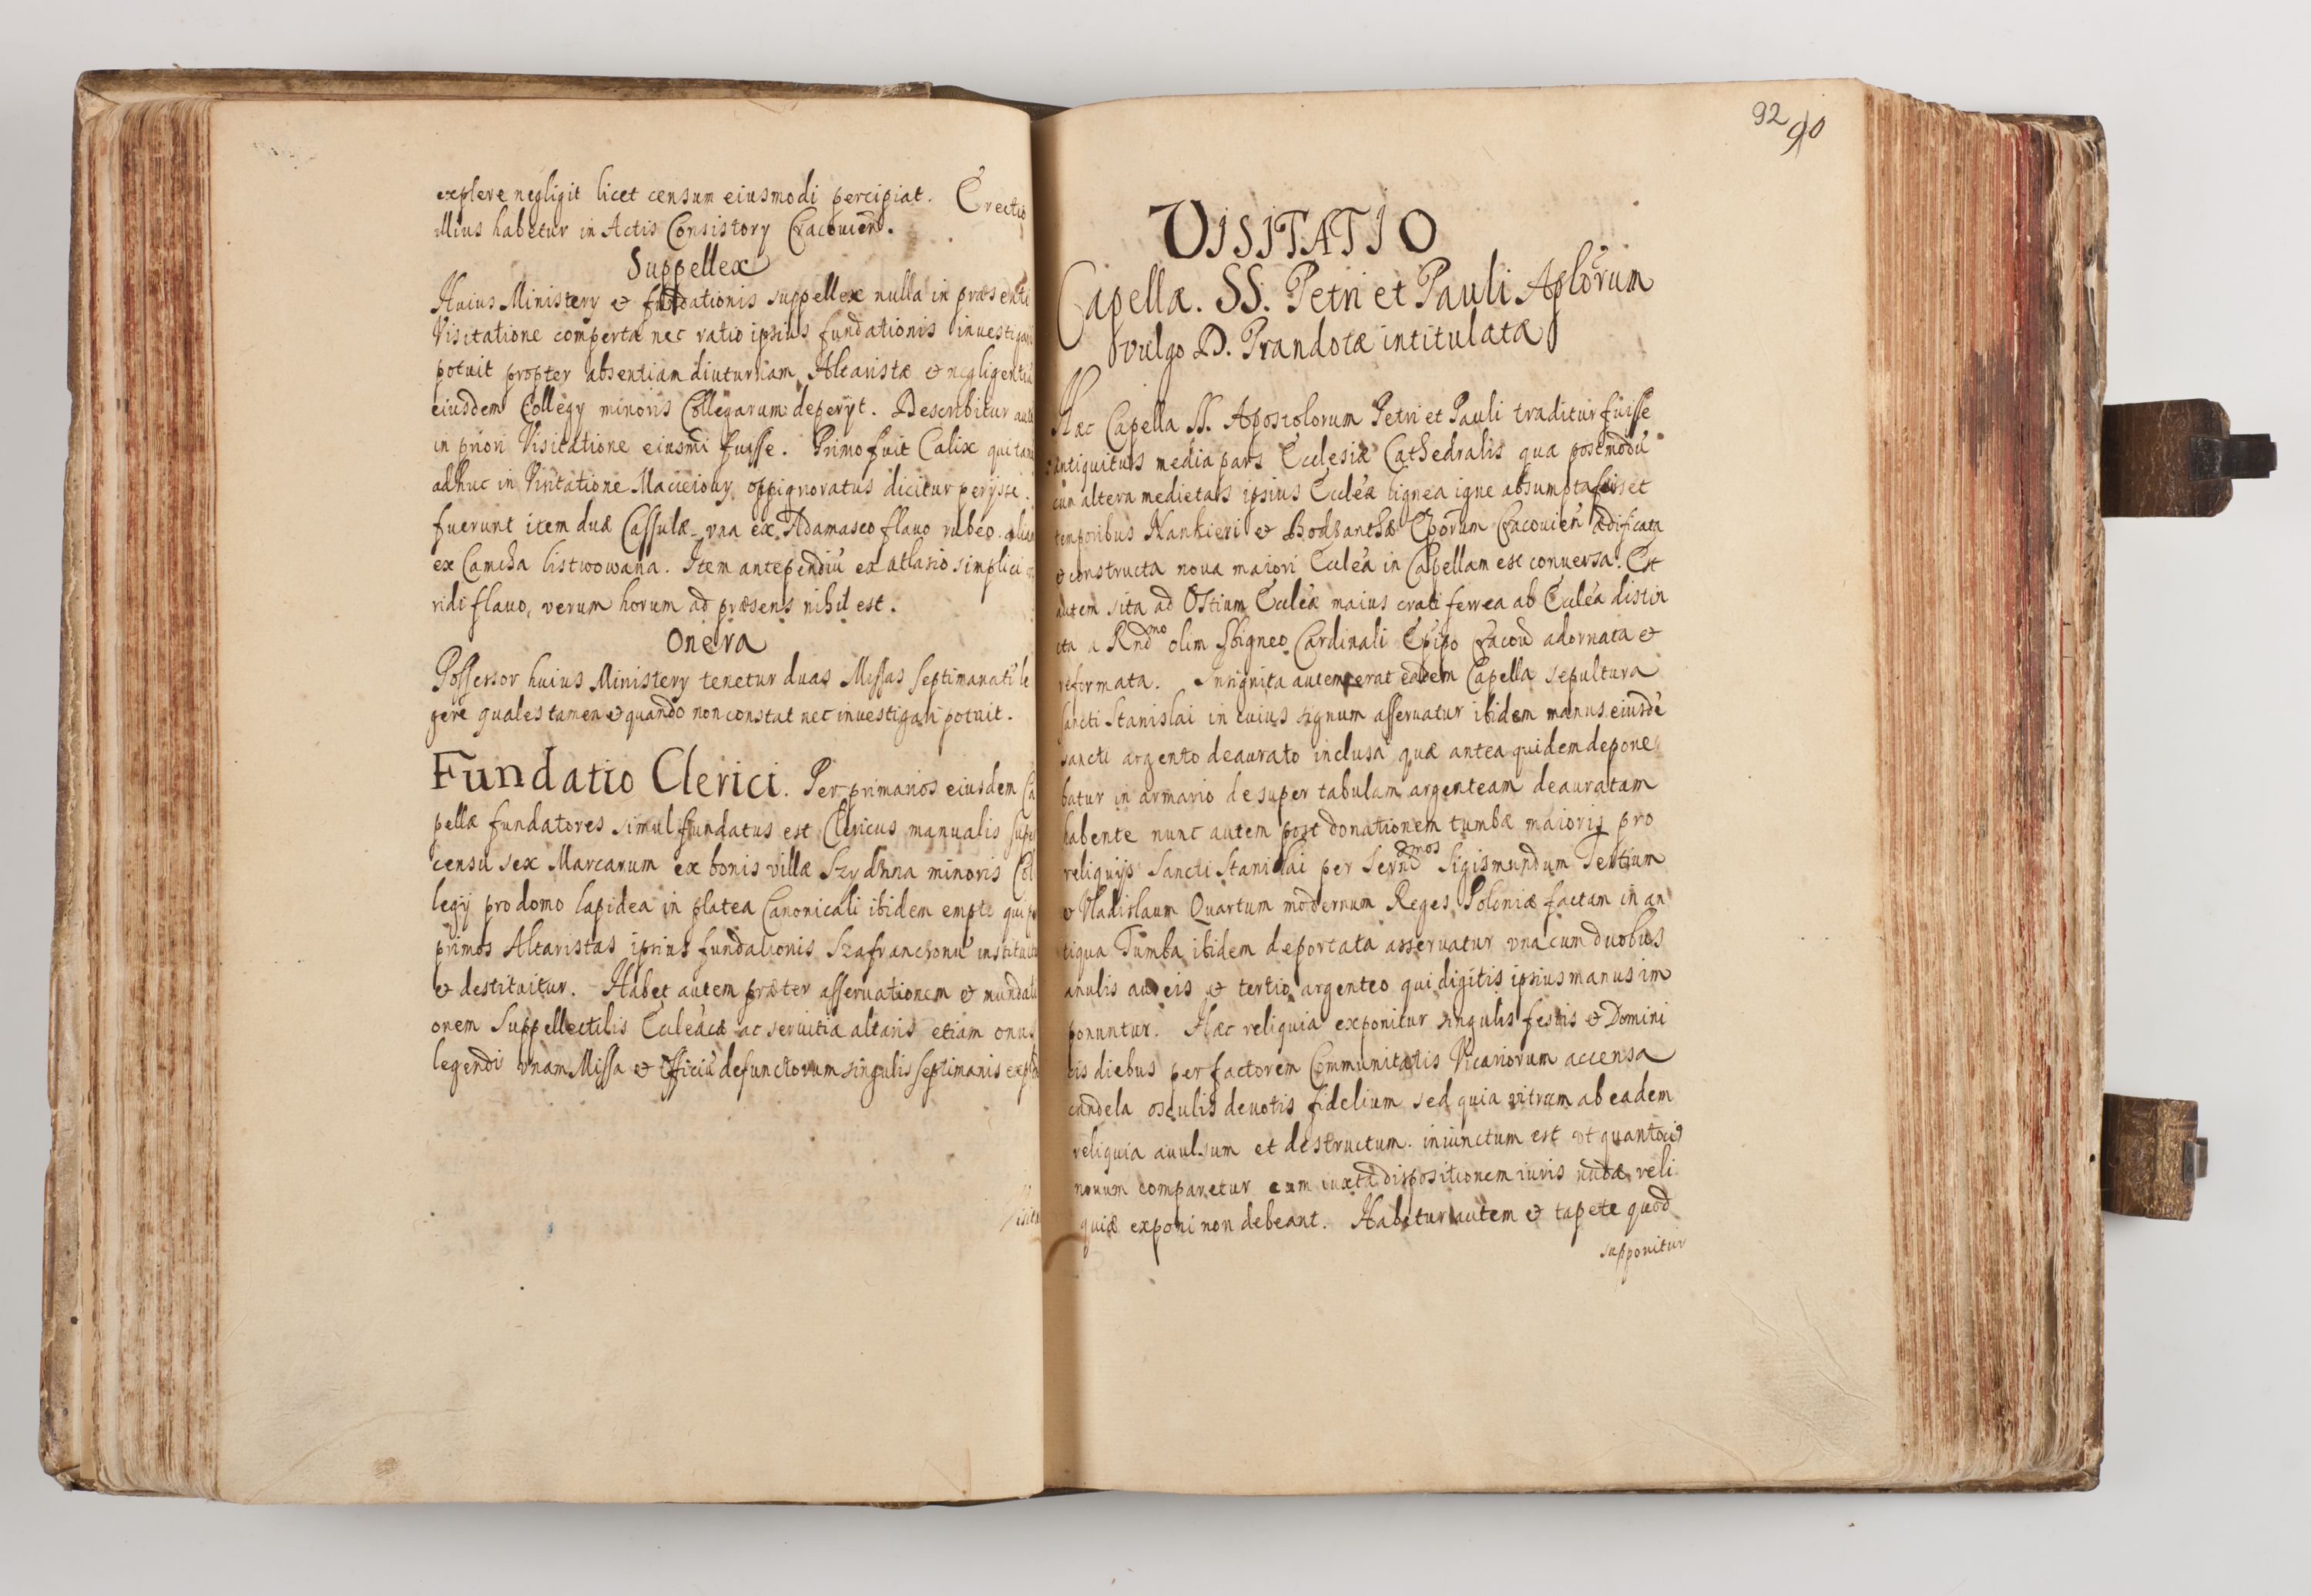 explere negligit licet censum eiusmodi percipiat. Erectio
illius habetur in Actis Consistory Cracouien.
Suppellex
Huius Ministery & fundationis suppellex nulla in præsenti
Visitatione comperta nec ratio ipsius fundationis inuestigari
potuit propter absentiam diuturnam Altaristæ & negligentia
eiusdem Collegy minoris Collegarum deperyt. Describitur aute
in priori Visitatione eiusmi fuisse. Primo fuit Calix qui tam
adhuc in Visitatione Macieiouy oppignoratus dicitur perysse.
fuerunt item duæ Cassulæ vna ex Adamasco flauo rubeo. alia
ex Camcha listwowana. Item antependiũ ex atlasio simplici
ridi flauo, verum horum ad præsens nihil est.
Onera
Possessor huius Ministery tenetur duas Missas septimanati le
gere quales tamen & quando non constat nec inuestigari potuit.
Fundatio Clerici. Per primarios eiusdem Ca
pellæ fundatores simul fundatus est Clericus manualis super
censu sex Marcarum ex bonis villæ minoris Col
legij pro domo lapidea in platea Canonicali ibidem empti qui p
primos Altaristas ipsius fundationis instituit
& destituitur. Habet autem præter asseruationem & mundati
onem Suppellectilis Eccleacæ ac seruitia altaris etiam onus
legendi vnam Missa & Officiũ defunctorum singulis septimanis expl
Visita
92 90
VISITATIO
Capellæ. SS. Petri et Pauli Aplorum
vulgo D. Prandotæ intitulatæ
Hæc Capella SS. Apostolorum Petri et Pauli traditur fuisse
antiquitus media pars Ecclesiæ Cathedralis qua postmodũ
cũm altera medietats ipsius Eccleæ lignea igne absumpta fuisset
temporibus Nankieri & Bodzanthæ Eporum Cracouien ædificata
& constructa noua maiori Ecclea in Capellam est conuersa. Est
autem sita ad Ostium Eccleæ maius crati ferrea ab Ecclea distin
cta a Rndmo olim Sbigneo Cardinali Epipo Cracou adornata &
reformata. Insignita autem erat eadem Capella sepultura
sancti Stanislai in cuius signum asseruatur ibidem manus eiusdẽ
sancti argento deaurato inclusa quæ antea quidem depone
batur in armario desuper tabulam argenteam deauratam
habente nunc autem post donationem tumbæ maioris pro
reliquijs Sancti Stanislai per Serndmos Sigismundum Tertium
& Vladislaum Quartum modernum Reges Poloniæ factam in an
tiqua Tumba ibidem deportata asseruatur vna cum duobus
anulis aureis & tertio argenteo qui digitis ipsius manus im
ponuntur. Hæc reliquia exponitur singulis festis & Domini
cis diebus per factorem Communitatis Vicariorum accensa
candela osculis deuotis fidelium sed quia vitrum ab eadem
reliquia auulsum et destructum. iniunctum est vt quantoci9
nouum comparetur cum iuxta dispositionem iuris nudæ reli
quiæ exponi non debeant. Habetur autem & tapete quod
supponitur